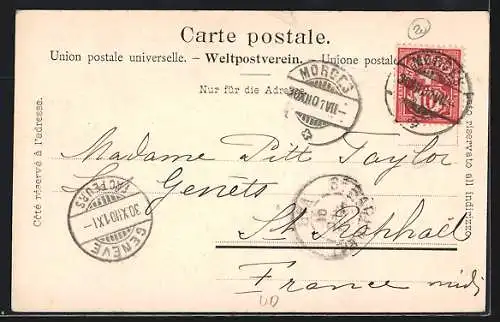 Carte postale.
Union postale universelle. – Weltpostverein. – Unione postale
MORGES
30.XII.01.VII–
MORGES
30.XII.01.VII–
10
Nur für die Adresse
Côté réservé à l'adresse.
Lato riservato all'indirizzo.
Madame Pitt Taylor
Les Genêts
GENÈVE
30.XII.01.XI–
VAPEURS
St Raphaël
France midi